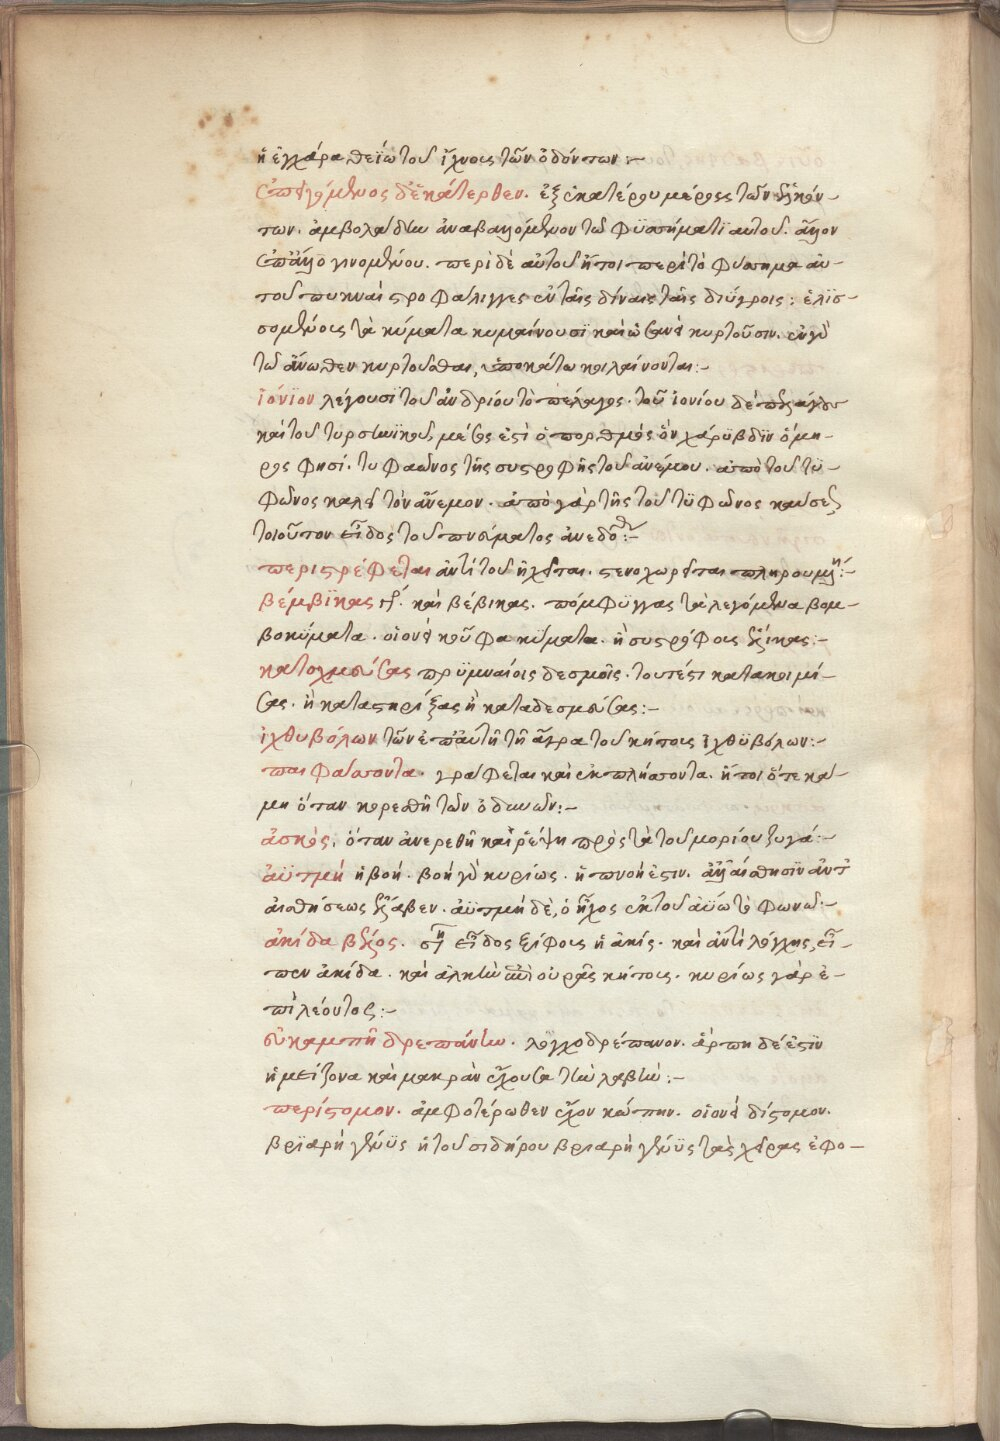 ἢ ἐγχάρα θείω τοῦ ἴχνους τῶν ὀδόντων :—
ἐπειγόμενος δ' ἑκάτερθεν. ἐξ ἑκατέρου μέρους τῶν
των. ἀμβολάδην ἀναβαλλόμενον τῶ φυσήματι αὐτοῦ. ἄλλον
ἐπ' ἄλλο γινομένου. περὶ δὲ αὐτοῦ ἤτοι περὶ τὸ φύσημα αὐ–
τοῦ πυκναὶ στροφάλιγγες ἐν ταῖς δίναις ταῖς διΰγροις : ἑλισ–
σομένοις τὰ κύματα κυμαίνουσι καὶ ὡσανεὶ κυρτοῦσιν.
τῶ ἄνωθεν κυρτοῦσθαι, ὑποκάτω κοιλαίνονται :—
ἰόνιον λέγουσι τοῦ ἀνδρίου τὸ πέλαγος. τοῦ ἰονίου δὲ πελάγους
καὶ τοῦ τυρσηνικοῦ, μέσος ἐστὶ ὁ πορθμὸς ὃν χάρυβδιν ὅμη–
ρος φησί. τυφάωνος τῆς συστροφῆς τοῦ ἀνέμου. ἀπὸ τοῦ τυ–
φῶνος καλεῖ τὸν ἄνεμον. ἀπὸ γὰρ τῆς τοῦ τυφῶνος καύσεως
τοιοῦτον εἶδος τοῦ πνεύματος ἀνεδόθη :—
περιστρέφεται ἀντὶ τοῦ ἠχεῖται. στενοχωρεῖται πληρουμένη :—
βέμβικας καὶ βέβικας. πομφύγγας τὰ λεγόμενα βομ–
βοκύματα. οἱονεὶ κοῦφα κύματα. ἢ συστρόφους ἕλικας :—
κατοχμάσας πρυμναίοις δεσμοῖς. τουτέστι κατακοιμί–
σας. ἢ καταστηρίξας ἢ καταδεσμεύσας :—
ἰχθυβόλων τῶν ἐπ' αὐτῆ τῆ ἄγρα τοῦ κήτους ἰχθυβόλων :—
παιφάσσοντα. γράφεται καὶ ἐκπλήσσοντα. ἤτοι ὅτε κά–
μη ὅταν κορεσθῆ τῶν ὀδυνῶν :—
ἀσκὸς. ὅταν ἀνερεθῆ καὶ ῥέψη πρὸς τὰ τοῦ μορίου ζυγά :—
ἀϋτμὴ ἡ βοή. βοὴ γὰρ κυρίως. ἡ πνοή ἐστιν. αἴσθησιν ἀντ'
αἰσθήσεως ἔλαβεν. ἀϋτμὴ δὲ, ὁ ἦχος ἐκ τοῦ ἀΰω τὸ φωνῶ :—
ἀκίδα βέλος. εἶδος ξίφους ἡ ἀκίς. καὶ ἀντὶ λόγχης, εἶ–
πεν ἀκίδα. καὶ ἀλκὴν ἀντὶ οὐρᾶς κήτους. κυρίως γὰρ ἐ–
πὶ λέοντος :—
εὐκαμπῆ δρεπάνην. λογχοδρέπανον. ἅρπη δέ ἐστιν
ἡ μείζονα καὶ μακρὰν ἔχουσα τὴν λαβήν :—
περίστομον. ἀμφοτέρωθεν ἔχον κώπην. οἱονεὶ δίστομον.
βριαρὴ γένυς ἡ τοῦ σιδήρου βριαρὴ γένυς τὰς χεῖρας ἐφο–